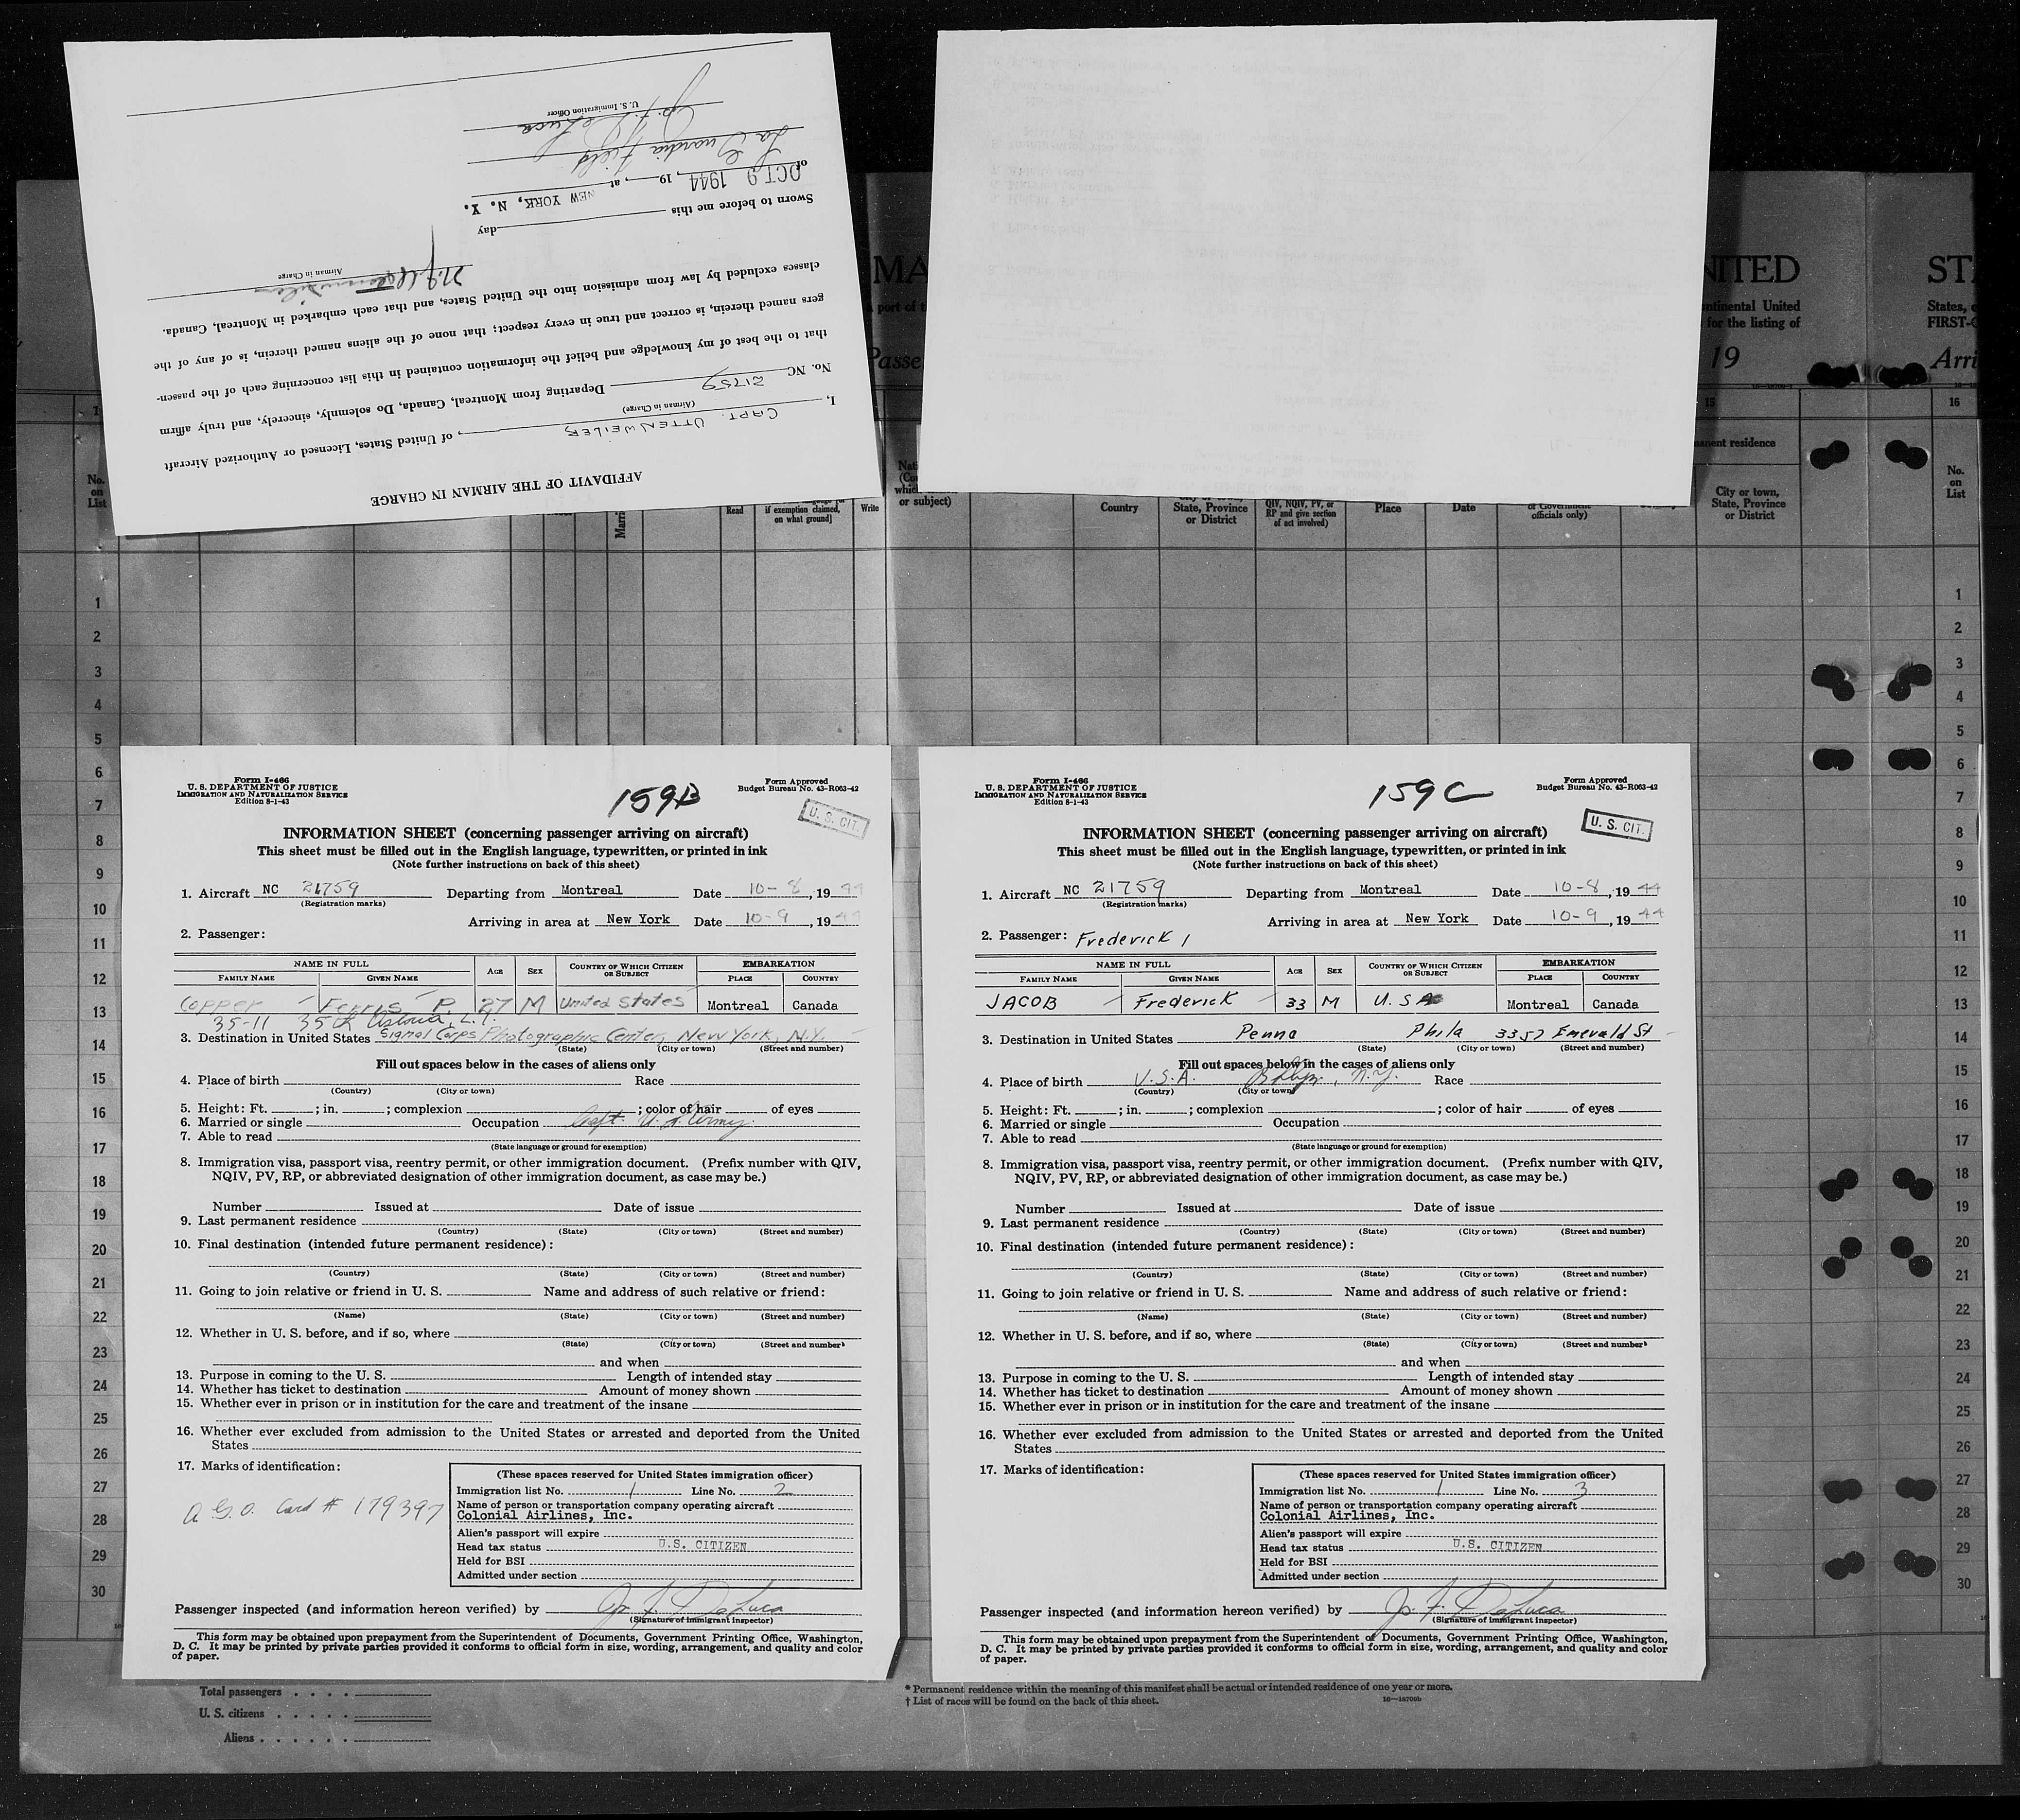 AFFIDAVIT OF THE AIRMAN IN CHARGE
I, CAPT. UTTENWEILER, of United States, Licensed or Authorized Aircraft
(Airman in Charge)
No. NC 21759 Departing from Montreal, Canada, Do solemnly, sincerely, and truly affirm
that to the best of my knowledge and belief the information contained in this list concerning each of the passen-
gers named therein, is correct and true in every respect; that none of the aliens named therein, is of any of the
classes excluded by law from admission into the United States, and that each embarked in Montreal, Canada.
Airman in Charge
Sworn to before me this day
of OCT 9 1944, 19, at NEW YORK, N. Y.
La Guardia Field
J. F. DeLuca
U. S. Immigration Officer
MA
port of
Passe
NITED
ntinental United
for the listing of
19
STA
States,
FIRST-C
Arri
15
16
manent residence
No.
on
List
Read
if exemption claimed,
on what ground]
Write
or subject)
Country
State, Province
or District
QIV, NQIV, PV, or
RP and give section
of act involved)
Place
Date
of Government
officials only)
City or town,
State, Province
or District
No.
on
List
1
2
3
4
5
6
7
8
9
10
11
12
13
14
15
16
17
18
19
20
21
22
23
24
25
26
27
28
29
30
Form I-466
U. S. DEPARTMENT OF JUSTICE
IMMIGRATION AND NATURALIZATION SERVICE
Edition 8-1-43
159B
Form Approved
Budget Bureau No. 43-R063-42
U. S. CIT.
INFORMATION SHEET (concerning passenger arriving on aircraft)
This sheet must be filled out in the English language, typewritten, or printed in ink
(Note further instructions on back of this sheet)
1. Aircraft NC 21759 Departing from Montreal Date 10-8, 1944
(Registration marks)
Arriving in area at New York Date 10-9, 1944
2. Passenger:
NAME IN FULL AGE SEX COUNTRY OF WHICH CITIZEN OR SUBJECT EMBARKATION
FAMILY NAME GIVEN NAME PLACE COUNTRY
Copper Ferris P. 27 M United States Montreal Canada
35-11 35th Astoria, L.I.
3. Destination in United States Signal Corps Photographic Center, New York, N.Y.
(State) (City or town) (Street and number)
Fill out spaces below in the cases of aliens only
4. Place of birth Race
(Country) (City or town)
5. Height: Ft. ; in. ; complexion ; color of hair of eyes
6. Married or single Occupation Capt. U. S. Army.
7. Able to read
(State language or ground for exemption)
8. Immigration visa, passport visa, reentry permit, or other immigration document. (Prefix number with QIV,
NQIV, PV, RP, or abbreviated designation of other immigration document, as case may be.)
Number Issued at Date of issue
9. Last permanent residence
(Country) (State) (City or town) (Street and number)
10. Final destination (intended future permanent residence):
(Country) (State) (City or town) (Street and number)
11. Going to join relative or friend in U. S. Name and address of such relative or friend:
(Name) (State) (City or town) (Street and number)
12. Whether in U. S. before, and if so, where
(State) (City or town) (Street and number)
and when
13. Purpose in coming to the U. S. Length of intended stay
14. Whether has ticket to destination Amount of money shown
15. Whether ever in prison or in institution for the care and treatment of the insane
16. Whether ever excluded from admission to the United States or arrested and deported from the United
States
17. Marks of identification:
A.G.O. Card # 179397
(These spaces reserved for United States immigration officer)
Immigration list No. 1 Line No. 2
Name of person or transportation company operating aircraft
Colonial Airlines, Inc.
Alien's passport will expire
Head tax status U.S. CITIZEN
Held for BSI
Admitted under section
Passenger inspected (and information hereon verified) by J. F. DeLuca
(Signature of immigrant inspector)
This form may be obtained upon prepayment from the Superintendent of Documents, Government Printing Office, Washington,
D. C. It may be printed by private parties provided it conforms to official form in size, wording, arrangement, and quality and color
of paper.
Form I-466
U. S. DEPARTMENT OF JUSTICE
IMMIGRATION AND NATURALIZATION SERVICE
Edition 8-1-43
159C
Form Approved
Budget Bureau No. 43-R063-42
U. S. CIT.
INFORMATION SHEET (concerning passenger arriving on aircraft)
This sheet must be filled out in the English language, typewritten, or printed in ink
(Note further instructions on back of this sheet)
1. Aircraft NC 21759 Departing from Montreal Date 10-8, 1944
(Registration marks)
Arriving in area at New York Date 10-9, 1944
2. Passenger: Frederick
NAME IN FULL AGE SEX COUNTRY OF WHICH CITIZEN OR SUBJECT EMBARKATION
FAMILY NAME GIVEN NAME PLACE COUNTRY
JACOB Frederick 33 M U. S A Montreal Canada
3. Destination in United States Penna Phila 3357 Emerald St
(State) (City or town) (Street and number)
Fill out spaces below in the cases of aliens only
4. Place of birth U.S.A. Bklyn., N.Y. Race
(Country) (City or town)
5. Height: Ft. ; in. ; complexion ; color of hair of eyes
6. Married or single Occupation
7. Able to read
(State language or ground for exemption)
8. Immigration visa, passport visa, reentry permit, or other immigration document. (Prefix number with QIV,
NQIV, PV, RP, or abbreviated designation of other immigration document, as case may be.)
Number Issued at Date of issue
9. Last permanent residence
(Country) (State) (City or town) (Street and number)
10. Final destination (intended future permanent residence):
(Country) (State) (City or town) (Street and number)
11. Going to join relative or friend in U. S. Name and address of such relative or friend:
(Name) (State) (City or town) (Street and number)
12. Whether in U. S. before, and if so, where
(State) (City or town) (Street and number)
and when
13. Purpose in coming to the U. S. Length of intended stay
14. Whether has ticket to destination Amount of money shown
15. Whether ever in prison or in institution for the care and treatment of the insane
16. Whether ever excluded from admission to the United States or arrested and deported from the United
States
17. Marks of identification:
(These spaces reserved for United States immigration officer)
Immigration list No. 1 Line No. 3
Name of person or transportation company operating aircraft
Colonial Airlines, Inc.
Alien's passport will expire
Head tax status U.S. CITIZEN
Held for BSI
Admitted under section
Passenger inspected (and information hereon verified) by J. F. DeLuca
(Signature of immigrant inspector)
This form may be obtained upon prepayment from the Superintendent of Documents, Government Printing Office, Washington,
D. C. It may be printed by private parties provided it conforms to official form in size, wording, arrangement, and quality and color
of paper.
1
2
3
4
5
6
7
8
9
10
11
12
13
14
15
16
17
18
19
20
21
22
23
24
25
26
27
28
29
30
Total passengers
U. S. citizens
Aliens
* Permanent residence within the meaning of this manifest shall be actual or intended residence of one year or more.
† List of races will be found on the back of this sheet.